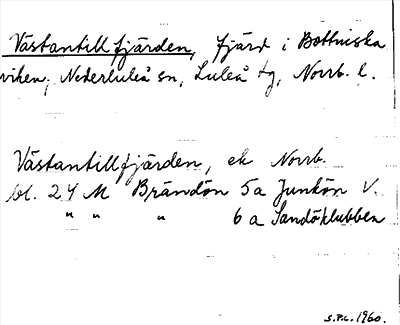 Västantillfjärden, fjärd i Bottniska
viken, Nederluleå sn, Luleå tg, Norrb. l.
Västantillfjärden, ek Norrb.
bl. 24 M Brändön 5a Junkön V.
" " " 6 a Sandöklubben
S.P.L. 1960.